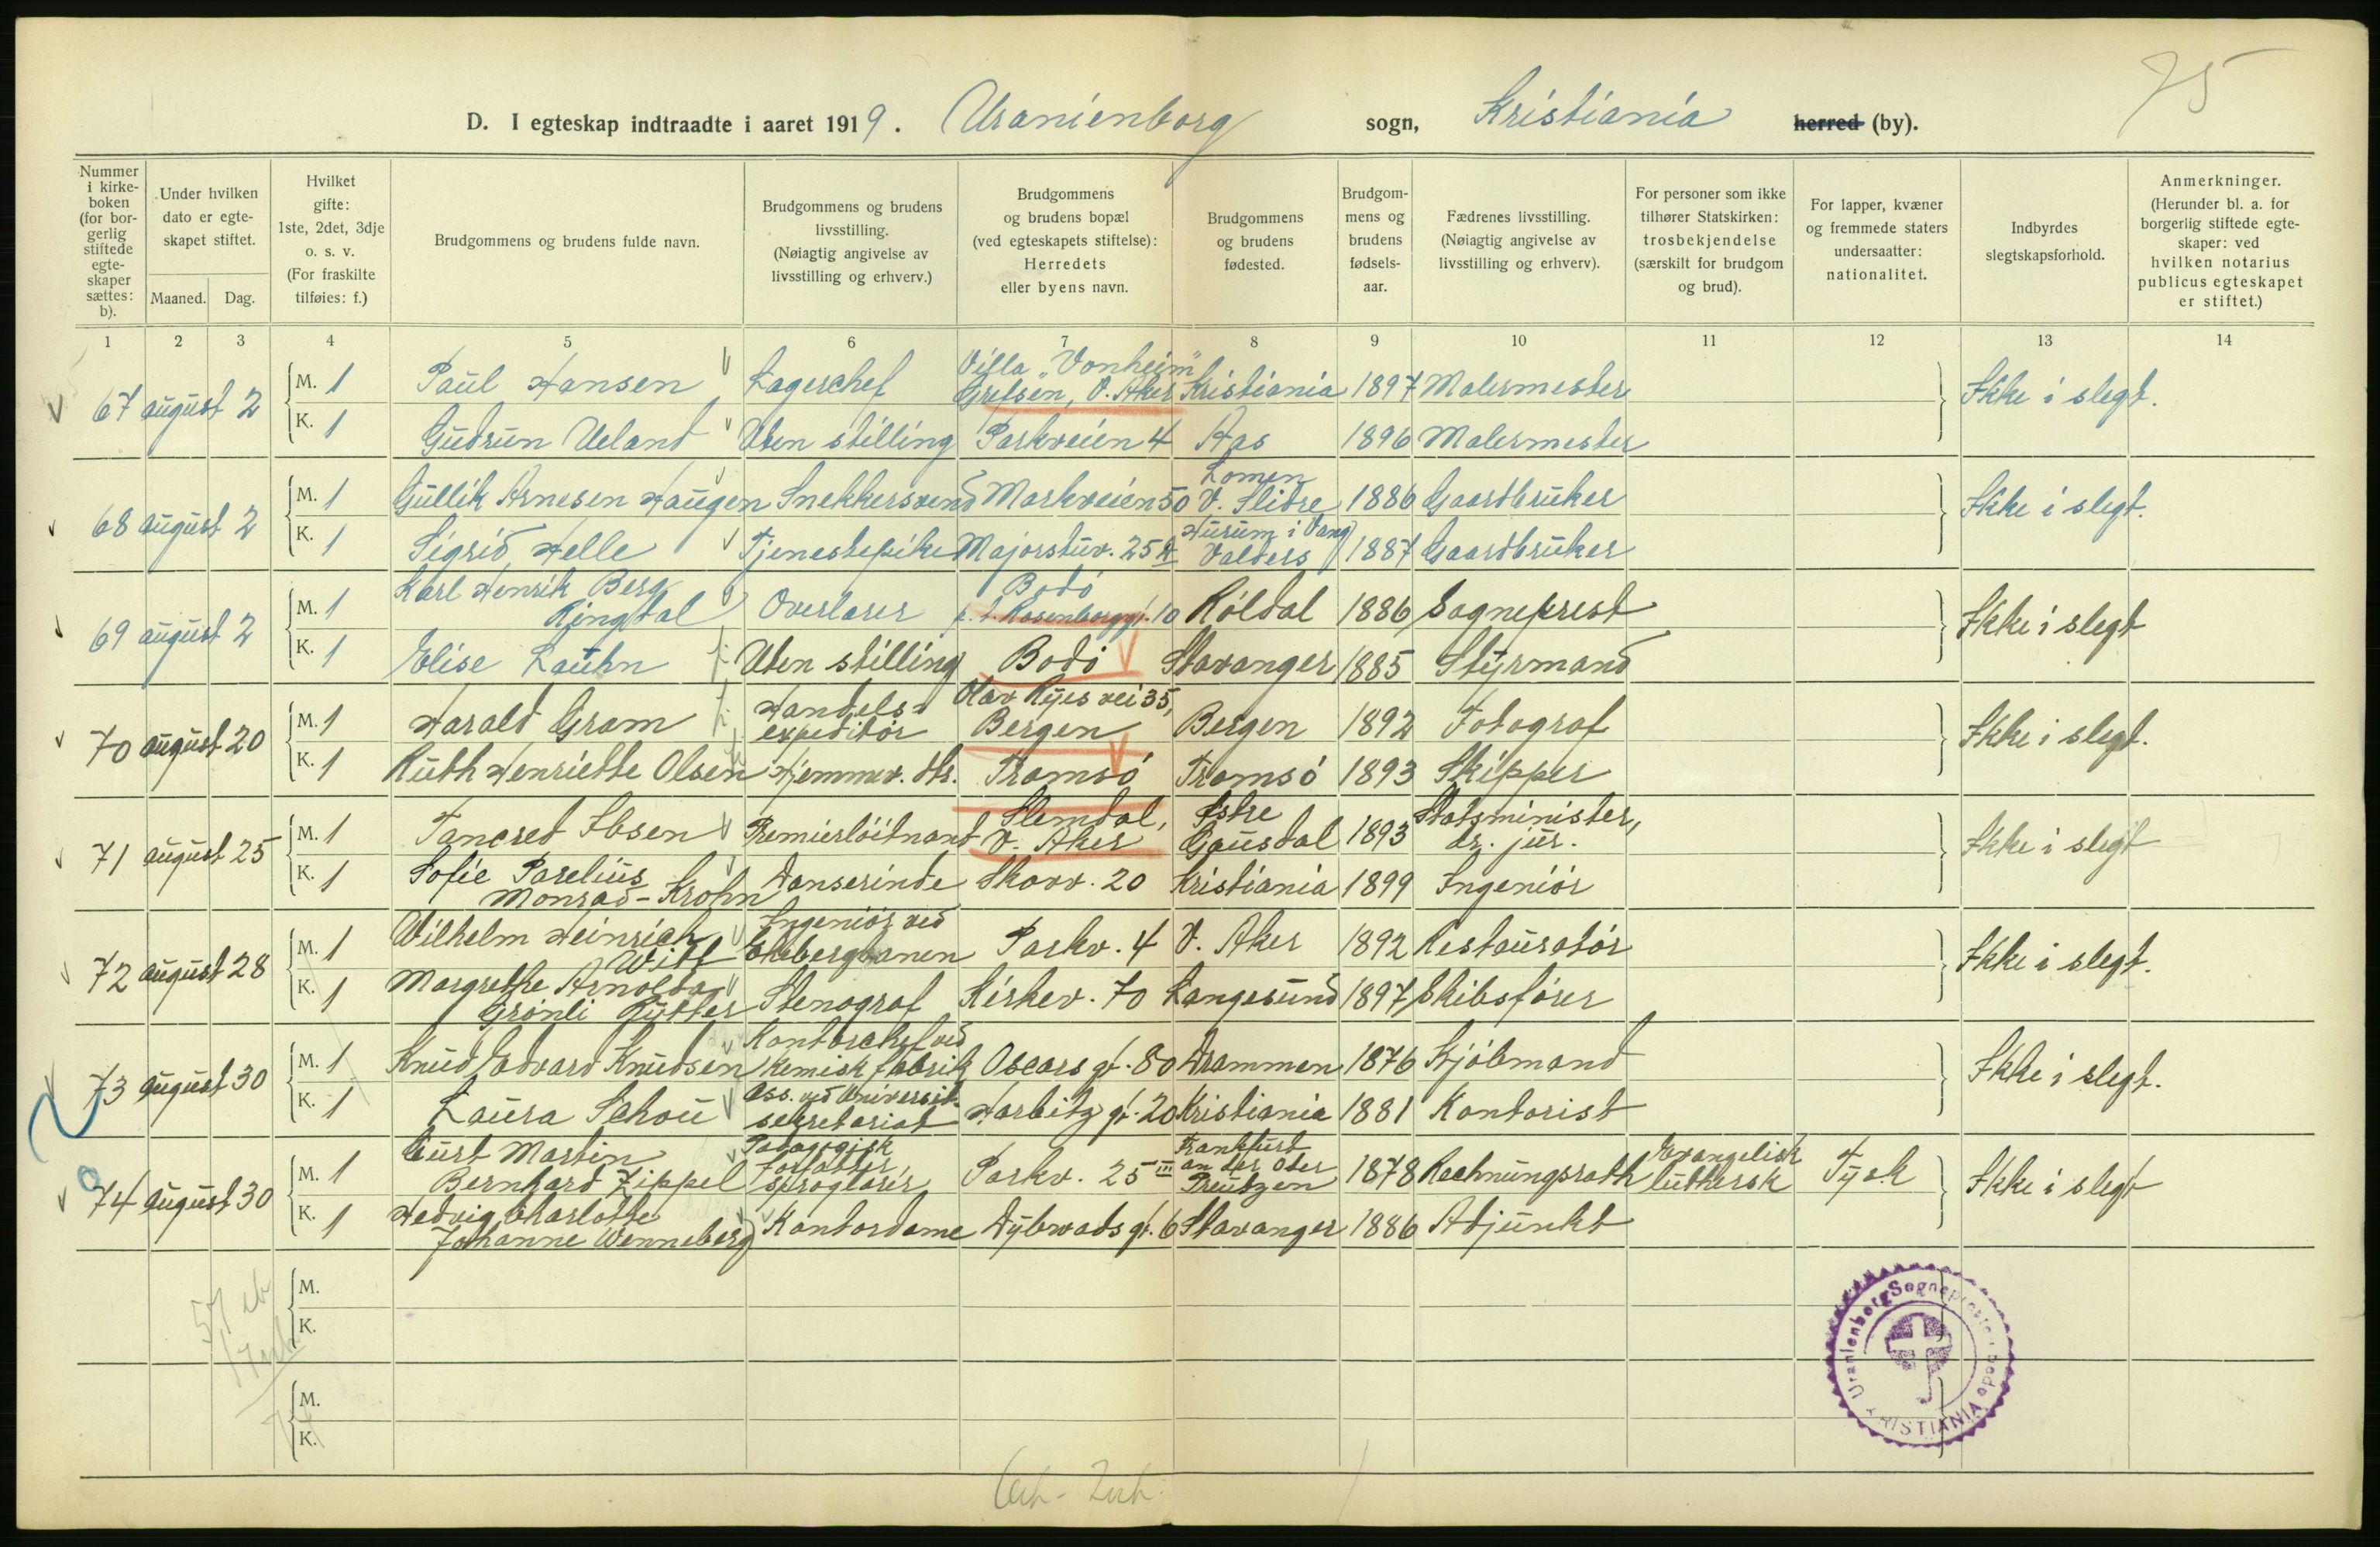 75
D. I egteskap indtraadte i aaret 1919. Uranienborg sogn, Kristiania herred (by).
Nummer i kirkeboken (for borgerlig stiftede egteskaper sættes: b).
Under hvilken dato er egteskapet stiftet.
Maaned. Dag.
Hvilket gifte: 1ste, 2det, 3dje o. s. v. (For fraskilte tilføies: f.)
Brudgommens og brudens fulde navn.
Brudgommens og brudens livsstilling. (Nøiagtig angivelse av livsstilling og erhverv.)
Brudgommens og brudens bopæl (ved egteskapets stiftelse): Herredets eller byens navn.
Brudgommens og brudens fødested.
Brudgommens og brudens fødselsaar.
Fædrenes livsstilling. (Nøiagtig angivelse av livsstilling og erhverv).
For personer som ikke tilhører Statskirken: trosbekjendelse (særskilt for brudgom og brud).
For lapper, kvæner og fremmede staters undersaatter: nationalitet.
Indbyrdes slegtskapsforhold.
Anmerkninger. (Herunder bl. a. for borgerlig stiftede egteskaper: ved hvilken notarius publicus egteskapet er stiftet.)
1 2 3 4 5 6 7 8 9 10 11 12 13 14
67 august 2 M. 1 Paul Hansen Lagerchef Villa "Vonheim" Grefsen, V. Aker Kristiania 1897 Malermester Ikke i slegt.
K. 1 Gudrun Ueland Uten stilling Parkveien 4 Aas 1896 Malermester
68 august 2 M. 1 Gullik Arnesen Haugen Snekkersvend Markveien 50 Lomen V. Slidre 1886 Gaardbruker Ikke i slegt.
K. 1 Sigrid Helle Tjenestepike Majorstuv. 25 Hurum i Vang Valders 1887 Gaardbruker
69 august 2 M. 1 Karl Henrik Berg Ringdal Overlærer Bodö p. t. Rosenborggt. 10 Röldal 1886 Sogneprest Ikke i slegt
K. 1 Elise Lauhn Uten stilling Bodö Stavanger 1885 Styrmand
70 august 20 M. 1 Harald Gram Handelsexpeditör Olav Ryes vei 35, Bergen Bergen 1892 Fotograf Ikke i slegt.
K. 1 Ruth Henriette Olsen Hjemmev. dtr. Tromsö Tromsö 1893 Skipper
71 august 25 M. 1 Tancred Ibsen Premierlöitnant Slemdal, V. Aker Östre Gausdal 1893 Statsminister, dr. jur. Ikke i slegt
K. 1 Sofie Parelius Monrad-Krohn Danserinde Skovv. 20 Kristiania 1899 Ingeniör
72 august 28 M. 1 Wilhelm Heinrich Witt Ingeniör ved Ekebergbanen Parkv. 4 V. Aker 1892 Restauratör Ikke i slegt.
K. 1 Margrethe Arnolda Grönli Rytter Stenograf Kirkev. 70 Langesund 1897 Skibsförer
73 august 30 M. 1 Knud Edvard Knudsen Kontorchef ved kemisk fabrik Oscars gt. 80 Drammen 1876 Kjöbmand Ikke i slegt.
K. 1 Laura Schou Ass. ved Universit. sekretariat Harbitz gt. 20 Kristiania 1881 Kontorist
74 august 30 M. 1 Curt Martin Bernhard Zippel Pædagogisk forfatter, sproglærer Parkv. 25 III Frankfurt an der Oder Preuszen 1878 Rechnungsrath Evangelisk luthersk Tysk Ikke i slegt
K. 1 Hedvig Charlotte Johanne Wenneberg Kontordame Dybwads gt. 6 Stavanger 1886 Adjunkt
M.
K.
M.
K.
Uranienborg Sogneprestembede
KRISTIANIA